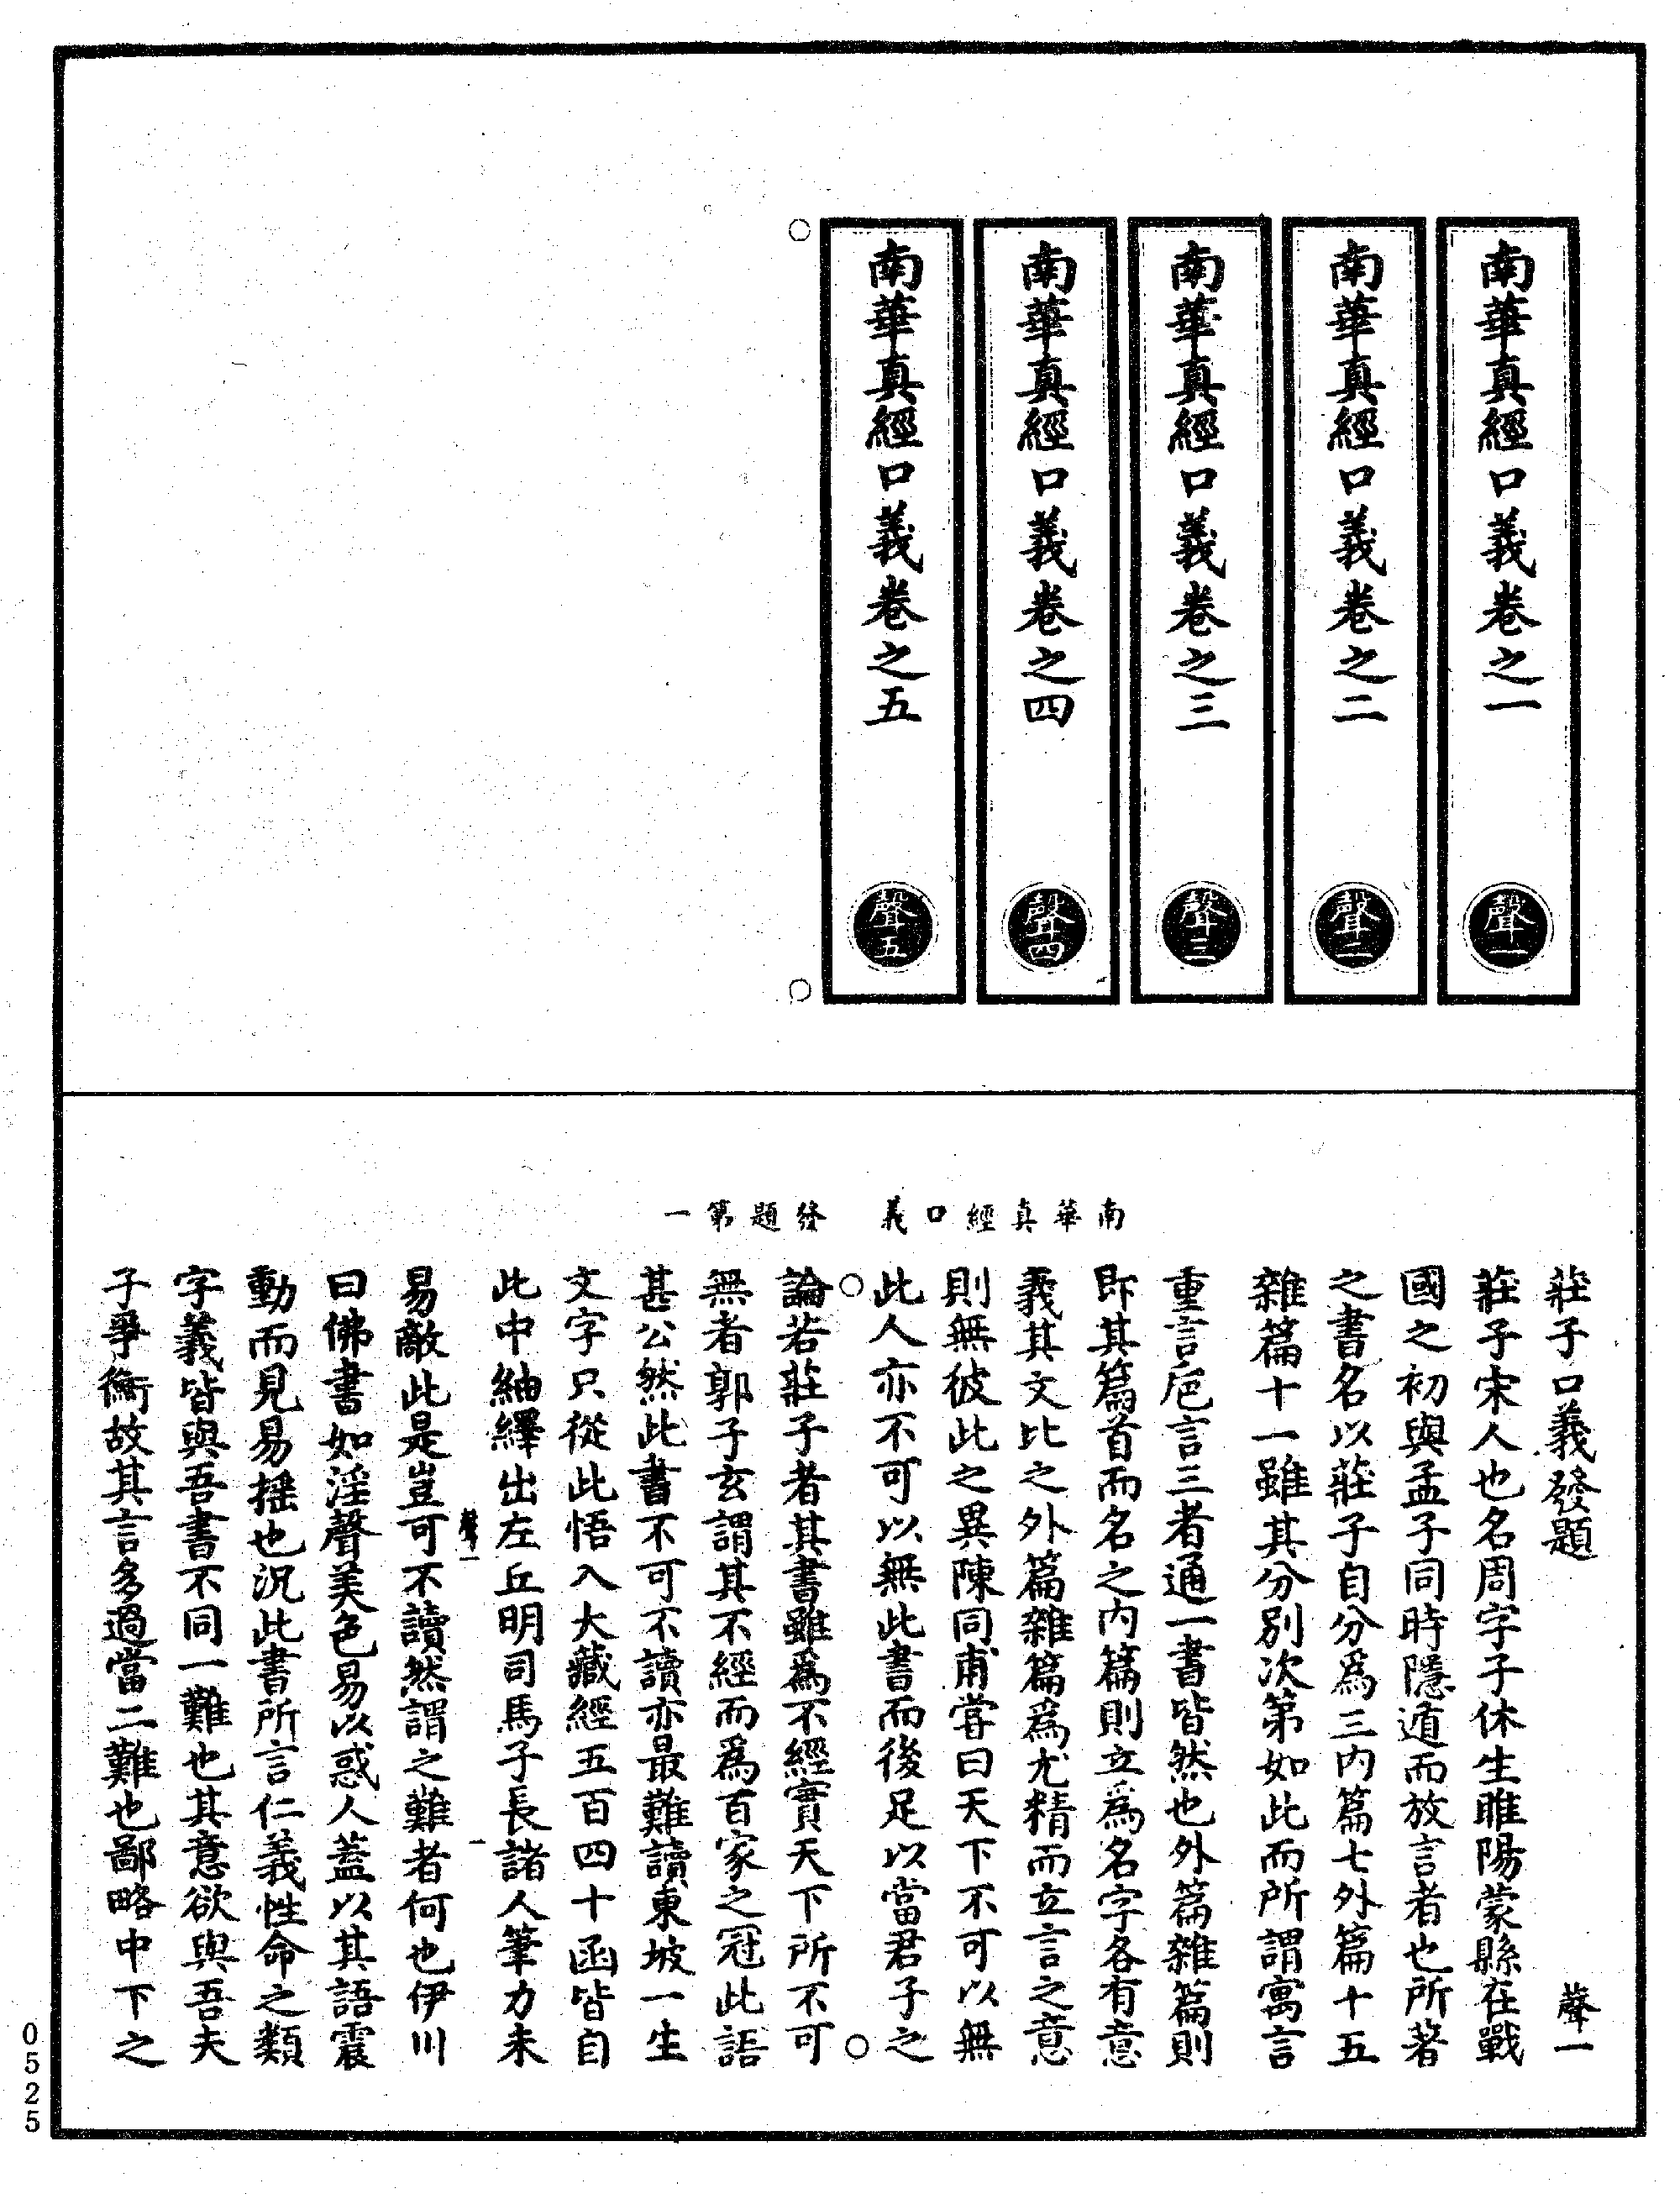 南華真經口義卷之一 聲一
南華真經口義卷之二 聲二
南華真經口義卷之三 聲三
南華真經口義卷之四 聲四
南華真經口義卷之五 聲五
南華真經口義 發題第一
莊子口義發題 聲一
莊子宋人也名周字子休生睢陽蒙縣在戰
國之初與孟子同時隱遁而放言者也所著
之書名以莊子自分爲三內篇七外篇十五
雜篇十一雖其分別次第如此而所謂寓言
重言巵言三者通一書皆然也外篇雜篇則
即其篇首而名之內篇則立爲名字各有意
義其文比之外篇雜篇爲尤精而立言之意
則無彼此之異陳同甫甞曰天下不可以無
此人亦不可以無此書而後足以當君子之
論若莊子者其書雖爲不經實天下所不可
無者郭子玄謂其不經而爲百家之冠此語
甚公然此書不可不讀亦最難讀東坡一生
文字只從此悟入大藏經五百四十函皆自
此中紬繹出左丘明司馬子長諸人筆力未
聲一 一
易敵此是豈可不讀然謂之難者何也伊川
曰佛書如淫聲美色易以惑人蓋以其語震
動而見易搖也況此書所言仁義性命之類
字義皆與吾書不同一難也其意欲與吾夫
子爭衡故其言多過當二難也鄙略中下之
0525